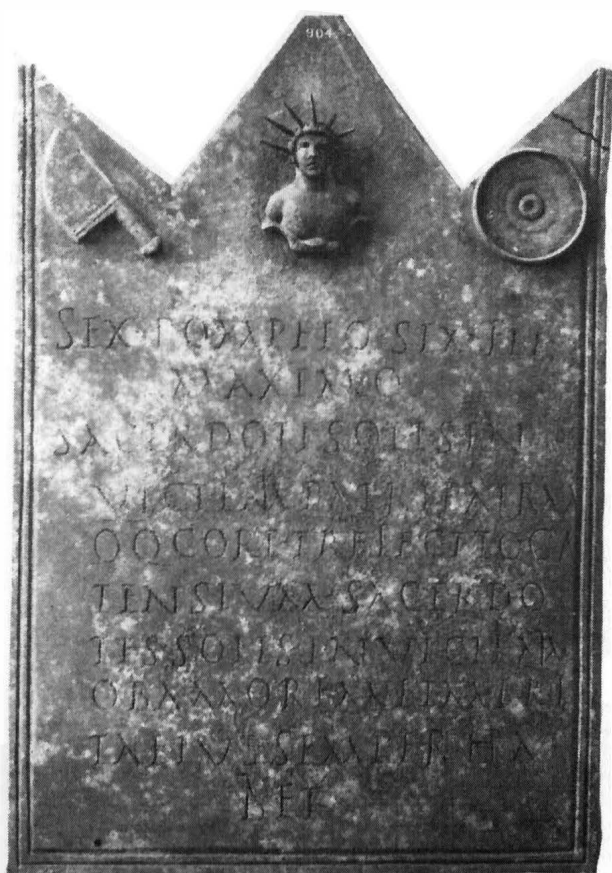 904
SEX·POMPEIO·SEX·FIL
MAXIMO
SACERDOTI SOLIS IN
VICTI MT PATRI PATRVM
QQ CORP TREIECT TOGA
TENSIVM SACERDO
TES SOLIS INVICTI MT
OB AMOREM ET MERI
TA EIVS SEMPER HA
BET